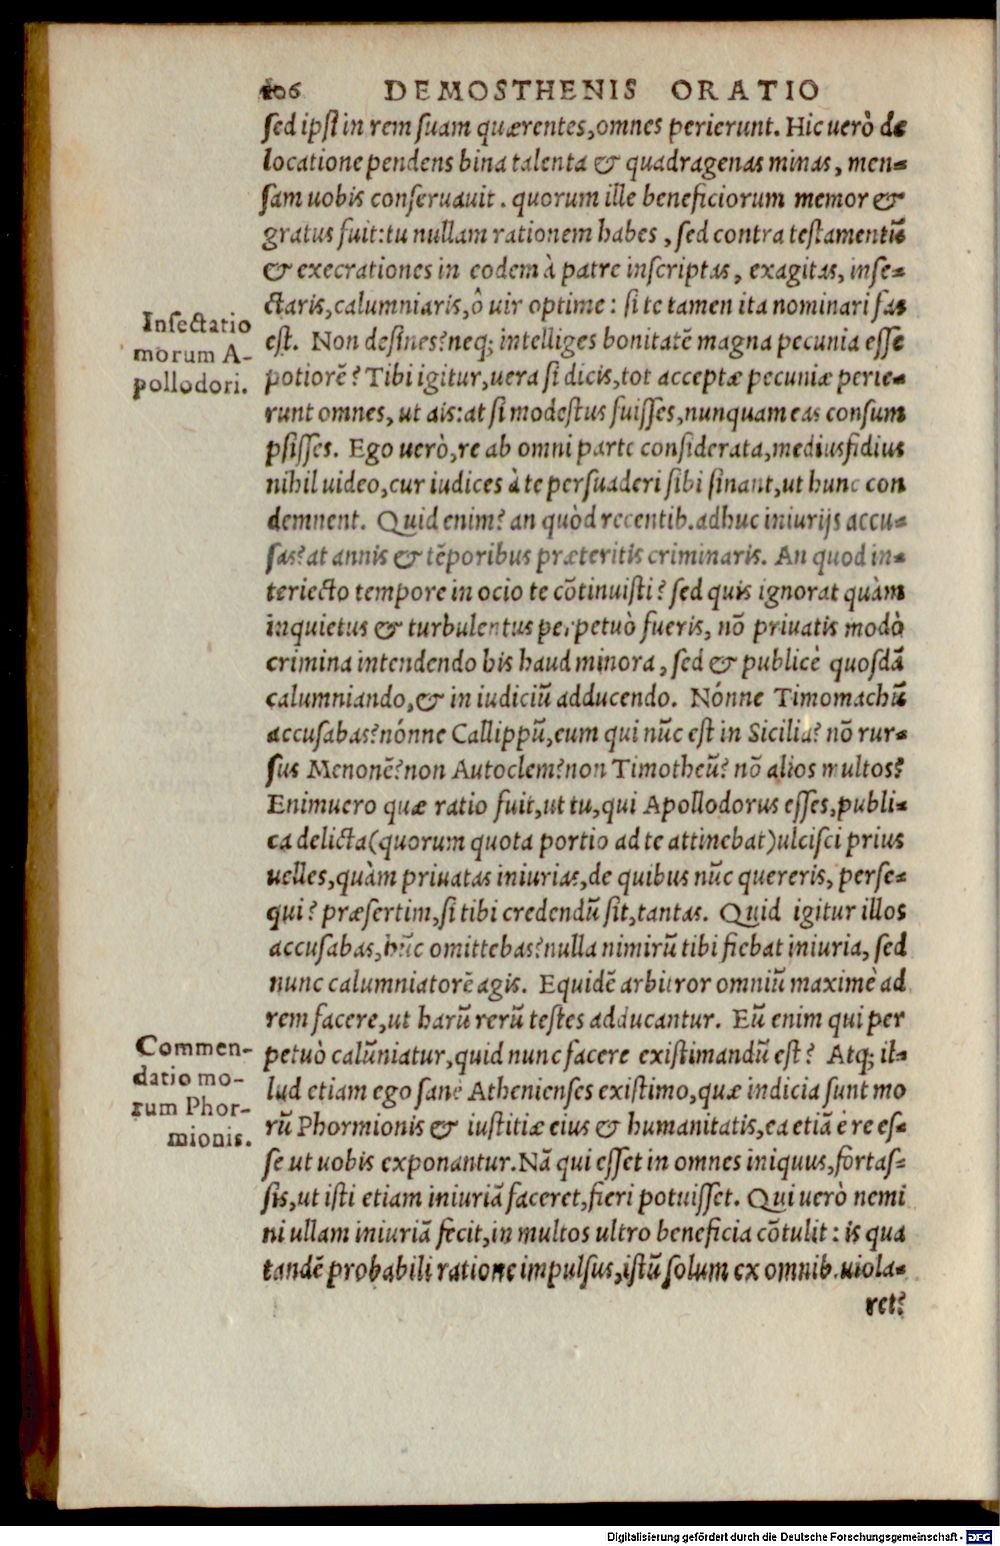 106 DEMOSTHENIS ORATIO
sed ipsi in rem suam quærentes, omnes perierunt. Hic uerò de
locatione pendens bina talenta & quadragenas minas, men-
sam uobis conseruauit. quorum ille beneficiorum memor &
gratus fuit: tu nullam rationem habes, sed contra testamentū
& execrationes in eodem à patre inscriptas, exagitas, inse-
ctaris, calumniaris, ô uir optime: si te tamen ita nominari fas
Insectatio
morum A-
pollodori.
est. Non desines? neq; intelliges bonitatē magna pecunia esse
potiorē? Tibi igitur, uera si dicis, tot acceptæ pecuniæ perie-
runt omnes, ut ais: at si modestus fuisses, nunquam eas consum
psisses. Ego uerò, re ab omni parte considerata, mediusfidius
nihil uideo, cur iudices à te persuaderi sibi sinant, ut hunc con
demnent. Quid enim? an quòd recentib. adhuc iniurijs accu-
sas? at annis & tēporibus præteritis criminaris. An quod in-
teriecto tempore in ocio te cōtinuisti? sed quis ignorat quàm
inquietus & turbulentus perpetuò fueris, nō priuatis modò
crimina intendendo his haud minora, sed & publicè quosdā
calumniando, & in iudiciū adducendo. Nónne Timomachū
accusabas? nónne Callippū, eum qui nūc est in Sicilia? nō rur-
sus Menonē? non Autoclem? non Timotheū? nō alios multos?
Enimuero quæ ratio fuit, ut tu, qui Apollodorus esses, publi-
ca delicta (quorum quota portio ad te attinebat) ulcisci prius
uelles, quàm priuatas iniurias, de quibus nūc quereris, perse-
qui? præsertim, si tibi credendū sit, tantas. Quid igitur illos
accusabas, hūc omittebas? nulla nimirū tibi fiebat iniuria, sed
nunc calumniatorē agis. Equidē arbitror omniū maximè ad
rem facere, ut harū rerū testes adducantur. Eū enim qui per
petuò calūniatur, quid nunc facere existimandū est? Atq; il-
Commen-
datio mo-
rum Phor-
mionis.
lud etiam ego sanè Athenienses existimo, quæ indicia sunt mo
rū Phormionis & iustitiæ eius & humanitatis, ea etiā è re es-
se ut uobis exponantur. Nā qui esset in omnes iniquus, fortas-
sis, ut isti etiam iniuriā faceret, fieri potuisset. Qui uerò nemi
ni ullam iniuriā fecit, in multos ultro beneficia cōtulit: is qua
tandē probabili ratione impulsus, istū solum ex omnib. uiola-
ret?
Digitalisierung gefördert durch die Deutsche Forschungsgemeinschaft - DFG